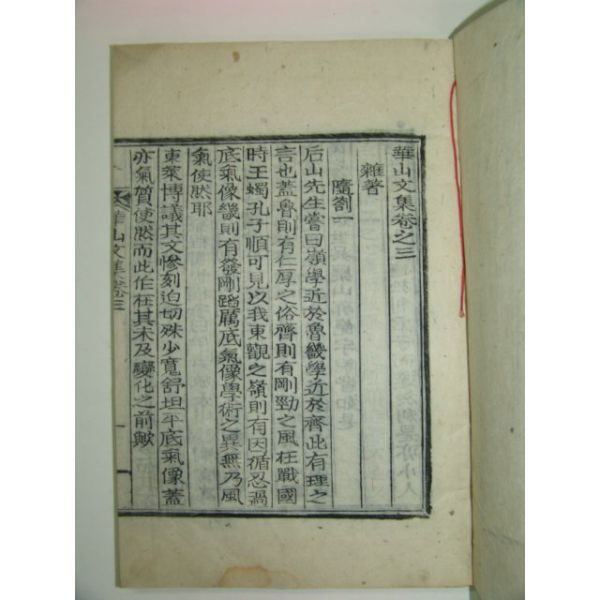 華山文集卷之三
雜著
隨劄一
后山先生嘗曰嶺學近於魯畿學近於齊此有理之
言也蓋魯則有仁厚之俗齊則有剛勁之風在戰國
時王蠋孔子順可見以我東觀之嶺則有因循忍過
底氣像畿則有發剛蹈厲底氣像學術之異無乃風
氣使然耶
東萊博議其文慘刻迫切殊少寬舒坦平底氣像蓋
亦氣質使然而此作在其未及變化之前歟
華山文集卷三